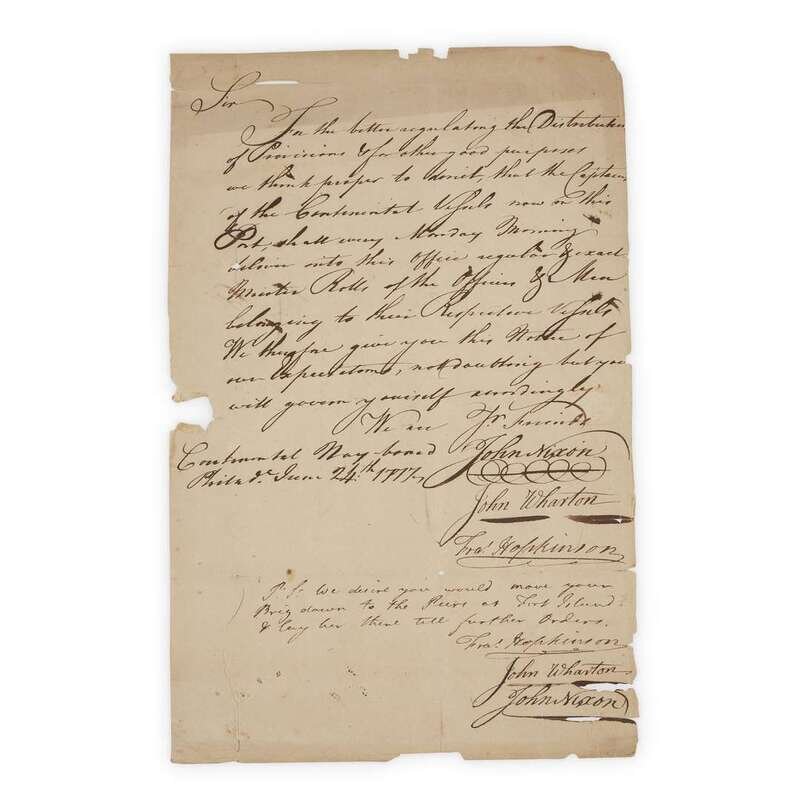 Sir
For the better regulating the Distribution
of Provisions & for other good purposes
we think proper to direct, that the Captains
of the Continental Vessels now in this
Port, shall every Monday Morning
deliver into this Office regular & exact
Muster Rolls of the Officers & Men
belonging to their Respective Vessels
We therefore give you this Notice of
our Expectations, not doubting but you
will govern yourself accordingly
We are Yr. Friends
Continental Navy board John Nixon
Philada. June 24th. 1777
John Wharton
Fras. Hopkinson
P. S. We desire you would move your
Brig down to the Piers at Fort Island
& lay her there till further Orders.
Fras. Hopkinson
John Wharton
John Nixon